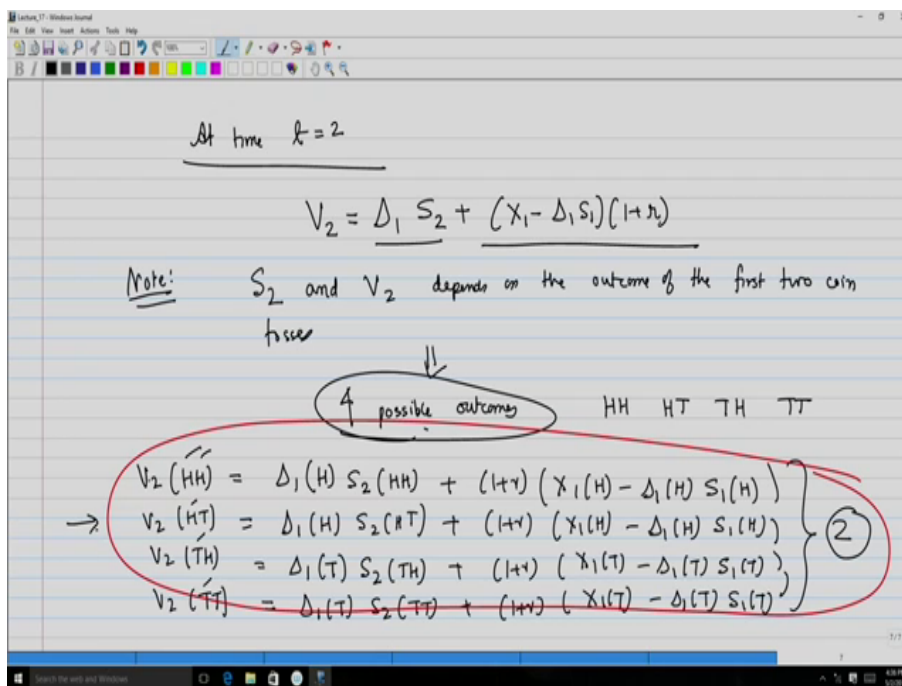 Lecture_17 - Windows Journal
File Edit View Insert Actions Tools Help
B I
At time t = 2
V₂ = Δ₁ S₂ + (X₁ - Δ₁ S₁)(1+r)
Note: S₂ and V₂ depends on the outcome of the first two coin
tosses
⇓
4 possible outcomes HH HT TH TT
V₂(HH) = Δ₁(H) S₂(HH) + (1+r) (X₁(H) - Δ₁(H) S₁(H))
→ V₂(HT) = Δ₁(H) S₂(HT) + (1+r) (X₁(H) - Δ₁(H) S₁(H)) } 2
V₂(TH) = Δ₁(T) S₂(TH) + (1+r) (X₁(T) - Δ₁(T) S₁(T))
V₂(TT) = Δ₁(T) S₂(TT) + (1+r) (X₁(T) - Δ₁(T) S₁(T))
7/7
7
Search the web and Windows